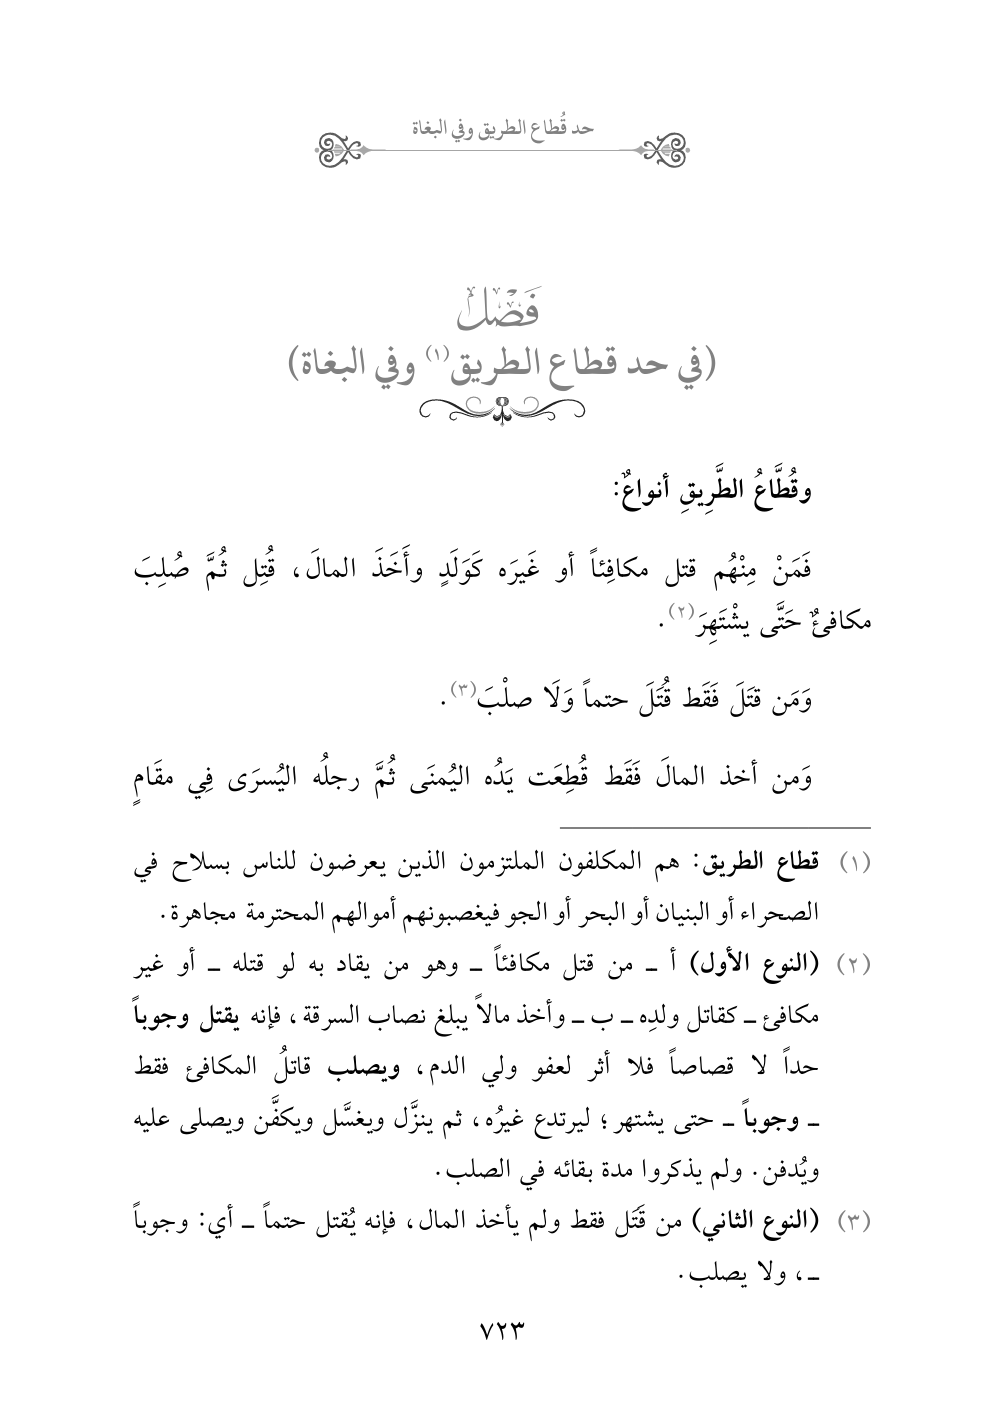 حد قُطاع الطريق وفي البغاة
فَصْل
(في حد قطاع الطريق(١) وفي البغاة)
وقُطَّاعُ الطَّرِيقِ أنواعٌ:
فَمَنْ مِنْهُم قتل مكافِئاً أو غَيرَه كَوَلَدٍ وأَخَذَ المالَ، قُتِل ثُمَّ صُلِبَ
مكافئٌ حَتَّى يشْتَهِرَ(٢).
وَمَن قتَلَ فَقَط قُتَلَ حتماً وَلَا صلْبَ(٣).
وَمن أخذ المالَ فَقَط قُطِعَت يَدُه اليُمنَى ثُمَّ رجلُه اليُسرَى فِي مقَامٍ
(١) قطاع الطريق: هم المكلفون الملتزمون الذين يعرضون للناس بسلاح في
الصحراء أو البنيان أو البحر أو الجو فيغصبونهم أموالهم المحترمة مجاهرة.
(٢) (النوع الأول) أ ــ من قتل مكافئاً ــ وهو من يقاد به لو قتله ــ أو غير
مكافئ ــ كقاتل ولدِه ــ ب ــ وأخذ مالاً يبلغ نصاب السرقة، فإنه يقتل وجوباً
حداً لا قصاصاً فلا أثر لعفو ولي الدم، ويصلب قاتلُ المكافئ فقط
ــ وجوباً ــ حتى يشتهر؛ ليرتدع غيرُه، ثم ينزَّل ويغسَّل ويكفَّن ويصلى عليه
ويُدفن. ولم يذكروا مدة بقائه في الصلب.
(٣) (النوع الثاني) من قَتَل فقط ولم يأخذ المال، فإنه يُقتل حتماً ــ أي: وجوباً
ــ، ولا يصلب.
٧٢٣